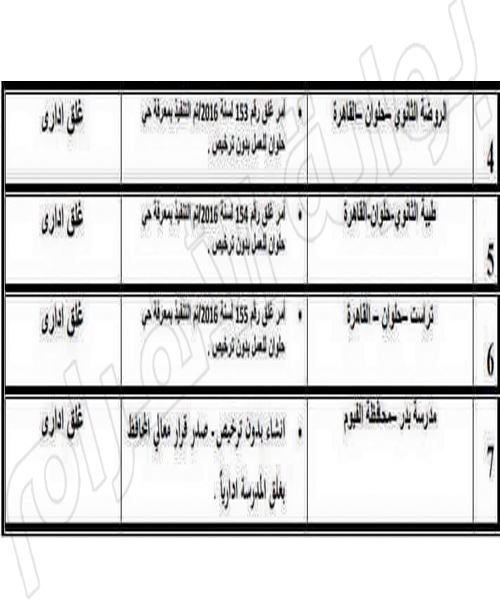 4
الروضة الثانوي -حلوان -القاهرة
• أمر غلق رقم 153 لسنة 2016/تم التنفيذ بمعرفة حي
حلوان للعمل بدون ترخيص .
غلق ادارى
5
طيبة الثانوي-حلوان-القاهرة
• أمر غلق رقم 154 لسنة 2016/تم التنفيذ بمعرفة حي
حلوان للعمل بدون ترخيص .
غلق ادارى
6
تراست - حلوان - القاهرة
• أمر غلق رقم 155 لسنة 2016/تم التنفيذ بمعرفة حي
حلوان للعمل بدون ترخيص .
غلق ادارى
7
مدرسة بدر -محافظة الفيوم
• انشاء بدون ترخيص - صدر قرار معالي المحافظ
بغلق المدرسة ادارياً .
غلق ادارى
بوابة الأهرام